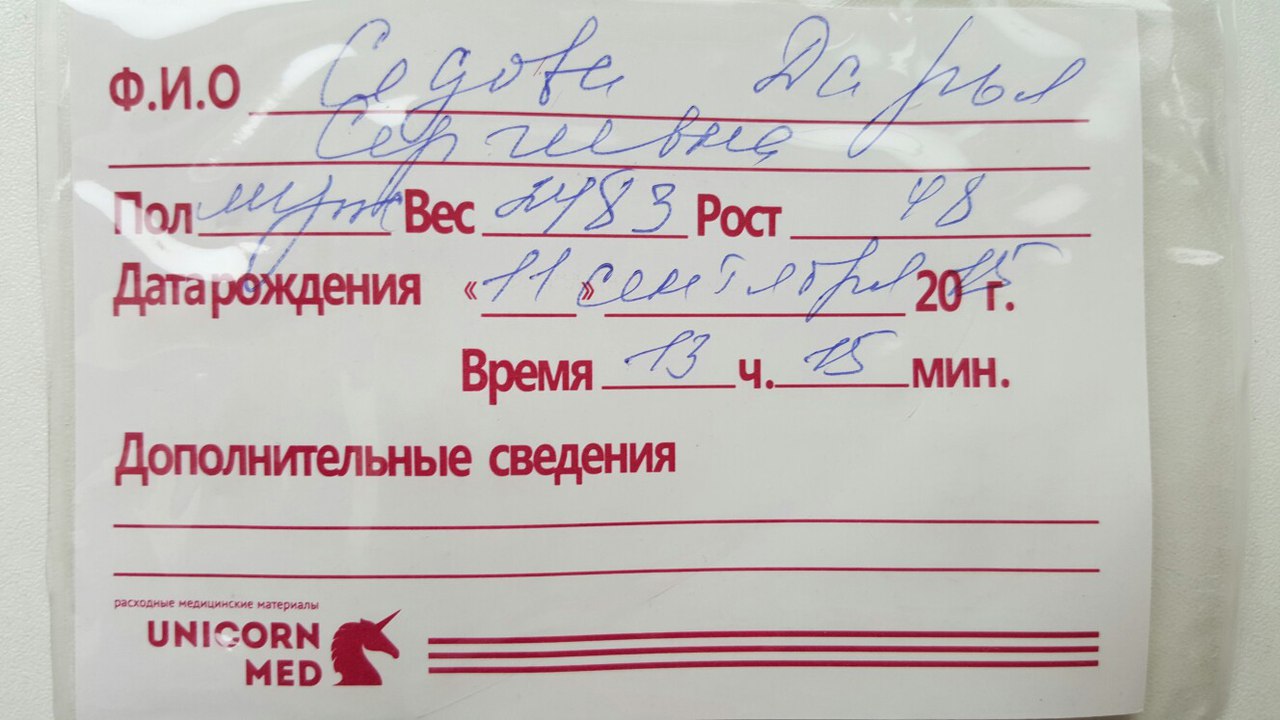 Ф.И.О Седова Дарья
Сергеевна
Пол муж Вес 2483 Рост 48
Дата рождения «11» сентября 2015 г.
Время 13 ч. 15 мин.
Дополнительные сведения
расходные медицинские материалы
UNICORN
MED